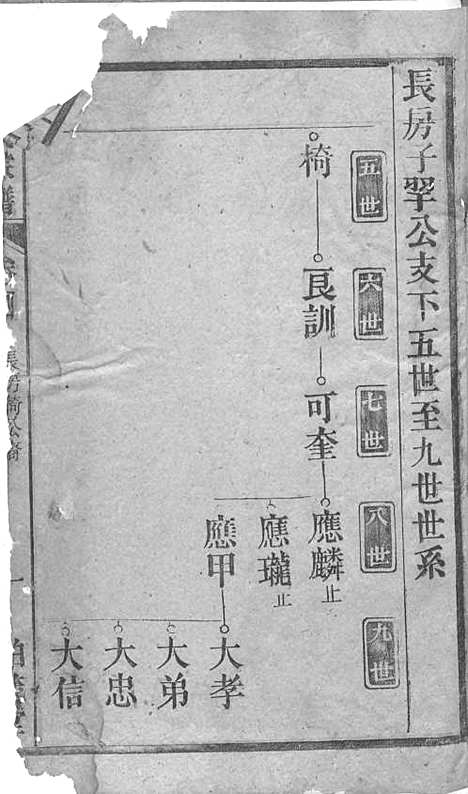 長房子罕公支下五世至九世世系
五世
六世
七世
八世
九世
椅
良訓
可奎
應麟止
應瓏止
應甲
大孝
大弟
大忠
大信
譜
四
長房椅公裔
一